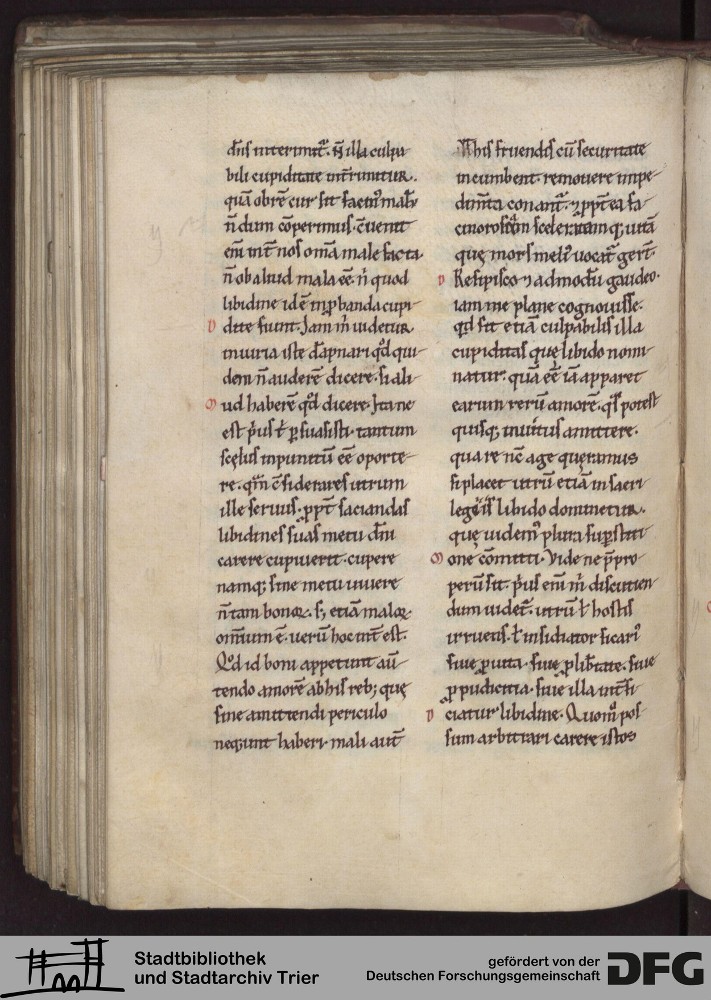 dn̄s interimit᷑. ñ illa culpa
bili cupiditate int̄rimitur.
quā obrē cur sit facin᷒ malū
ñ dum cōperimus. c̄uenit
eīm int̄ nos om̄ia male facta
ñ ob aliud mala eē. ñ quod
libidine id ē inp̱banda cupi
D dite fiunt. Jam m̍ uidetur
iniuria iste dāpnari qd̍ qui
dem ñ auderē dicere. si ali
O ud haberē qd̍ dicere. Ita ne
est p̍us t̍ p̱suasisti. tantum
scęlus inpunitū eē oporte
re. qm̄ c̄siderares utrum
ille seruus. ꝓpt̄ saciandas
libidines suas metu dn̄i
carere cupiuerit. cupere
namq; sine metu uiuere
ñ tam bonoꝝ. s; etiā maloꝝ
omnium ē. uerū hoc int̄ est.
Qd̍ id boni appetunt au᷑
tendo amorē ab his reb; quę
sine amittendi periculo
neq̍unt haberi. mali aut̄
Vt his fruendis cū securitate
incumbent. remouere impe
dim̄ta conant᷑. ⁊ ꝓpt̄ea fa
cinorosā sceleratamq; uitā
quę mors meli᷒ uocat᷑ ger̄t.
D Resipisco ⁊ admodū gaudeo.
iam me plane cognouisse.
qd̍ sit etiā culpabilis illa
cupiditas quę libido nomi
natur. quā eē iā apparet
earum rerū amorē. q̍s potest
quisq; inuitus amittere.
qua re nc̄ age quęramus
si placet utrū etiā in sacri
legiis libido dominetur.
quę uidem᷒ plura sup̱stiti
O one cōmitti. Vide ne p̄pro
perū sit. p̍us eīm m̍ discutien
dum uidet᷑. utrū ł hostis
irruens. ł insidiator sicari᷒
siue ꝓ uita. siue ꝓ lib̄tate. siue
ꝓ pudicitia. siue illa int̄fi
D ciatur libidine. Quom̊ pos
sum arbitrari carere istos
Stadtbibliothek
und Stadtarchiv Trier
gefördert von der
Deutschen Forschungsgemeinschaft
DFG